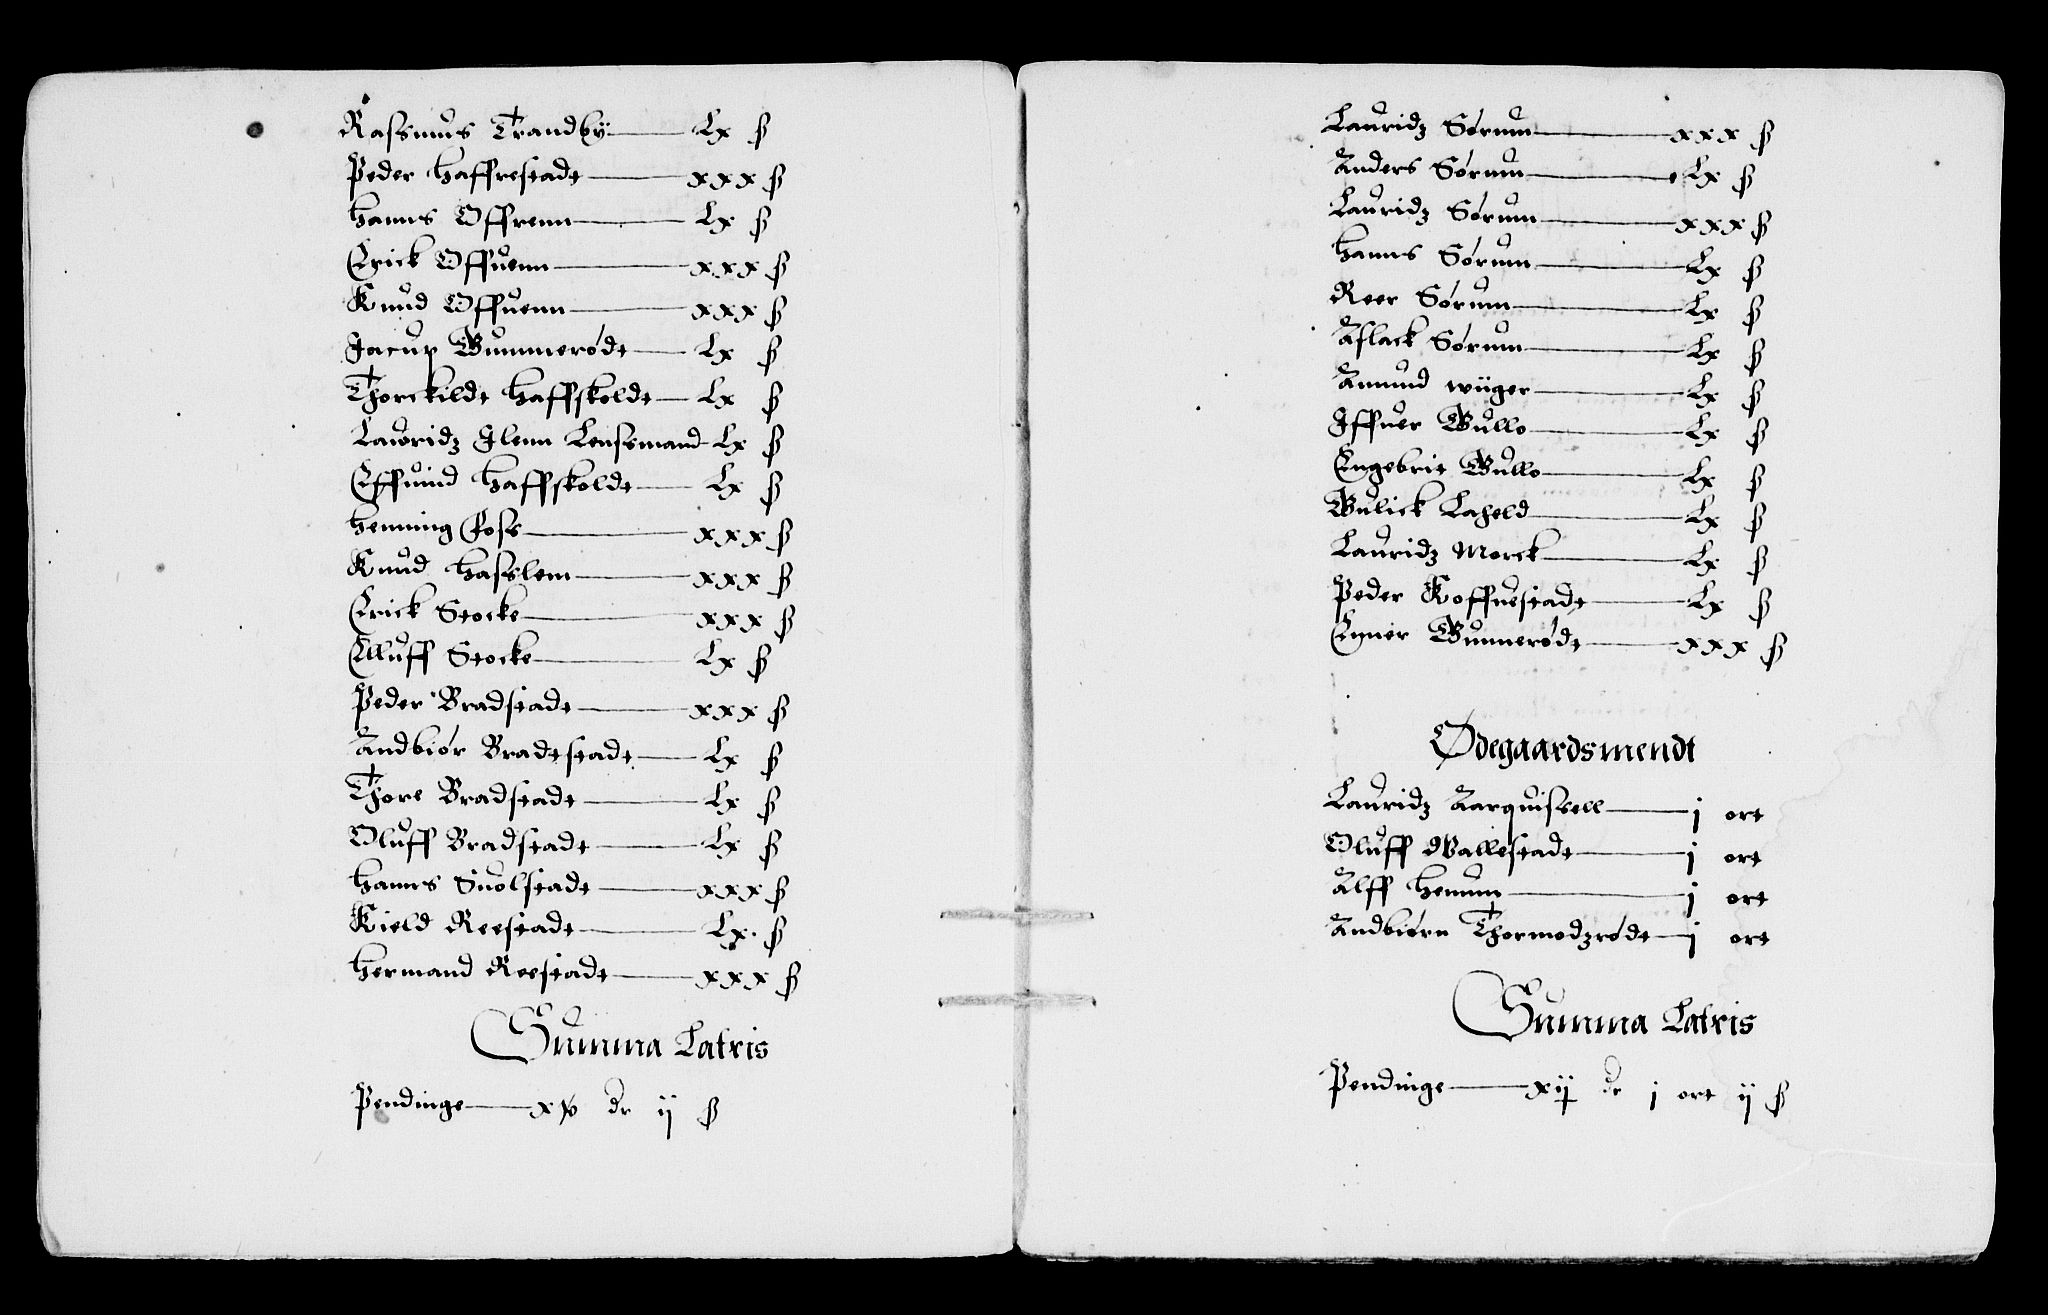 Rassmus Trandby — Lx ß
Peder Haffrestadt — xxx ß
Hanns Offrenn — Lx ß
Erick Offuenn — xxx ß
Knud Offuenn — xxx ß
Jacup Wummerødt — Lx ß
Thorckildt Haffskoldt — Lx ß
Lauridz Glenn Lenssmand Lx ß
Effuind Haffskoldt — Lx ß
Henning Foss — xxx ß
Knud Hasslem — xxx ß
Erick Stocke — xxx ß
Elluff Stocke — Lx ß
Peder Bradstadt — xxx ß
Andbiør Bradtstadt — Lx ß
Thore Bradstadt — Lx ß
Oluff Bradstadt — Lx ß
Hanns Suolstadt — xxx ß
Kield Reestadt — Lx ß
Hermand Reestadt — xxx ß
Summa Latris
Pendinge — xv dr ij ß
Lauridz Sørum — xxx ß
Anders Sørum — Lx ß
Lauridz Sørum — xxx ß
Hanns Sørum — Lx ß
Reer Sørum — Lx ß
Aslack Sørum — Lx ß
Amund Wiiger — Lx ß
Iffuer Wullo — Lx ß
Engebrit Wullo — Lx ß
Gulick Laheld — Lx ß
Lauridz Morck — Lx ß
Peder Koffuestadt — Lx ß
Eyner Wunnerødt — xxx ß
Ødegaardsmendt
Lauridz Aarquissell — j ort
Oluff Wallestadt — j ort
Alff Henum — j ort
Andbiørn Thormodzrødt — j ort
Summa Latris
Pendinge — xij dr j ort ij ß